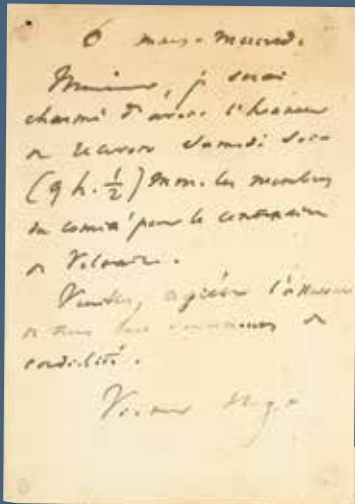 6 mars - mercredi.
Monsieur, je serai
charmé d'avoir l'honneur
de recevoir samedi soir
(9 h. ½) MM. les membres
du comité pour le centenaire
de Voltaire.
Veuillez agréer l'
de tous mes de
cordialité.
Victor Hugo